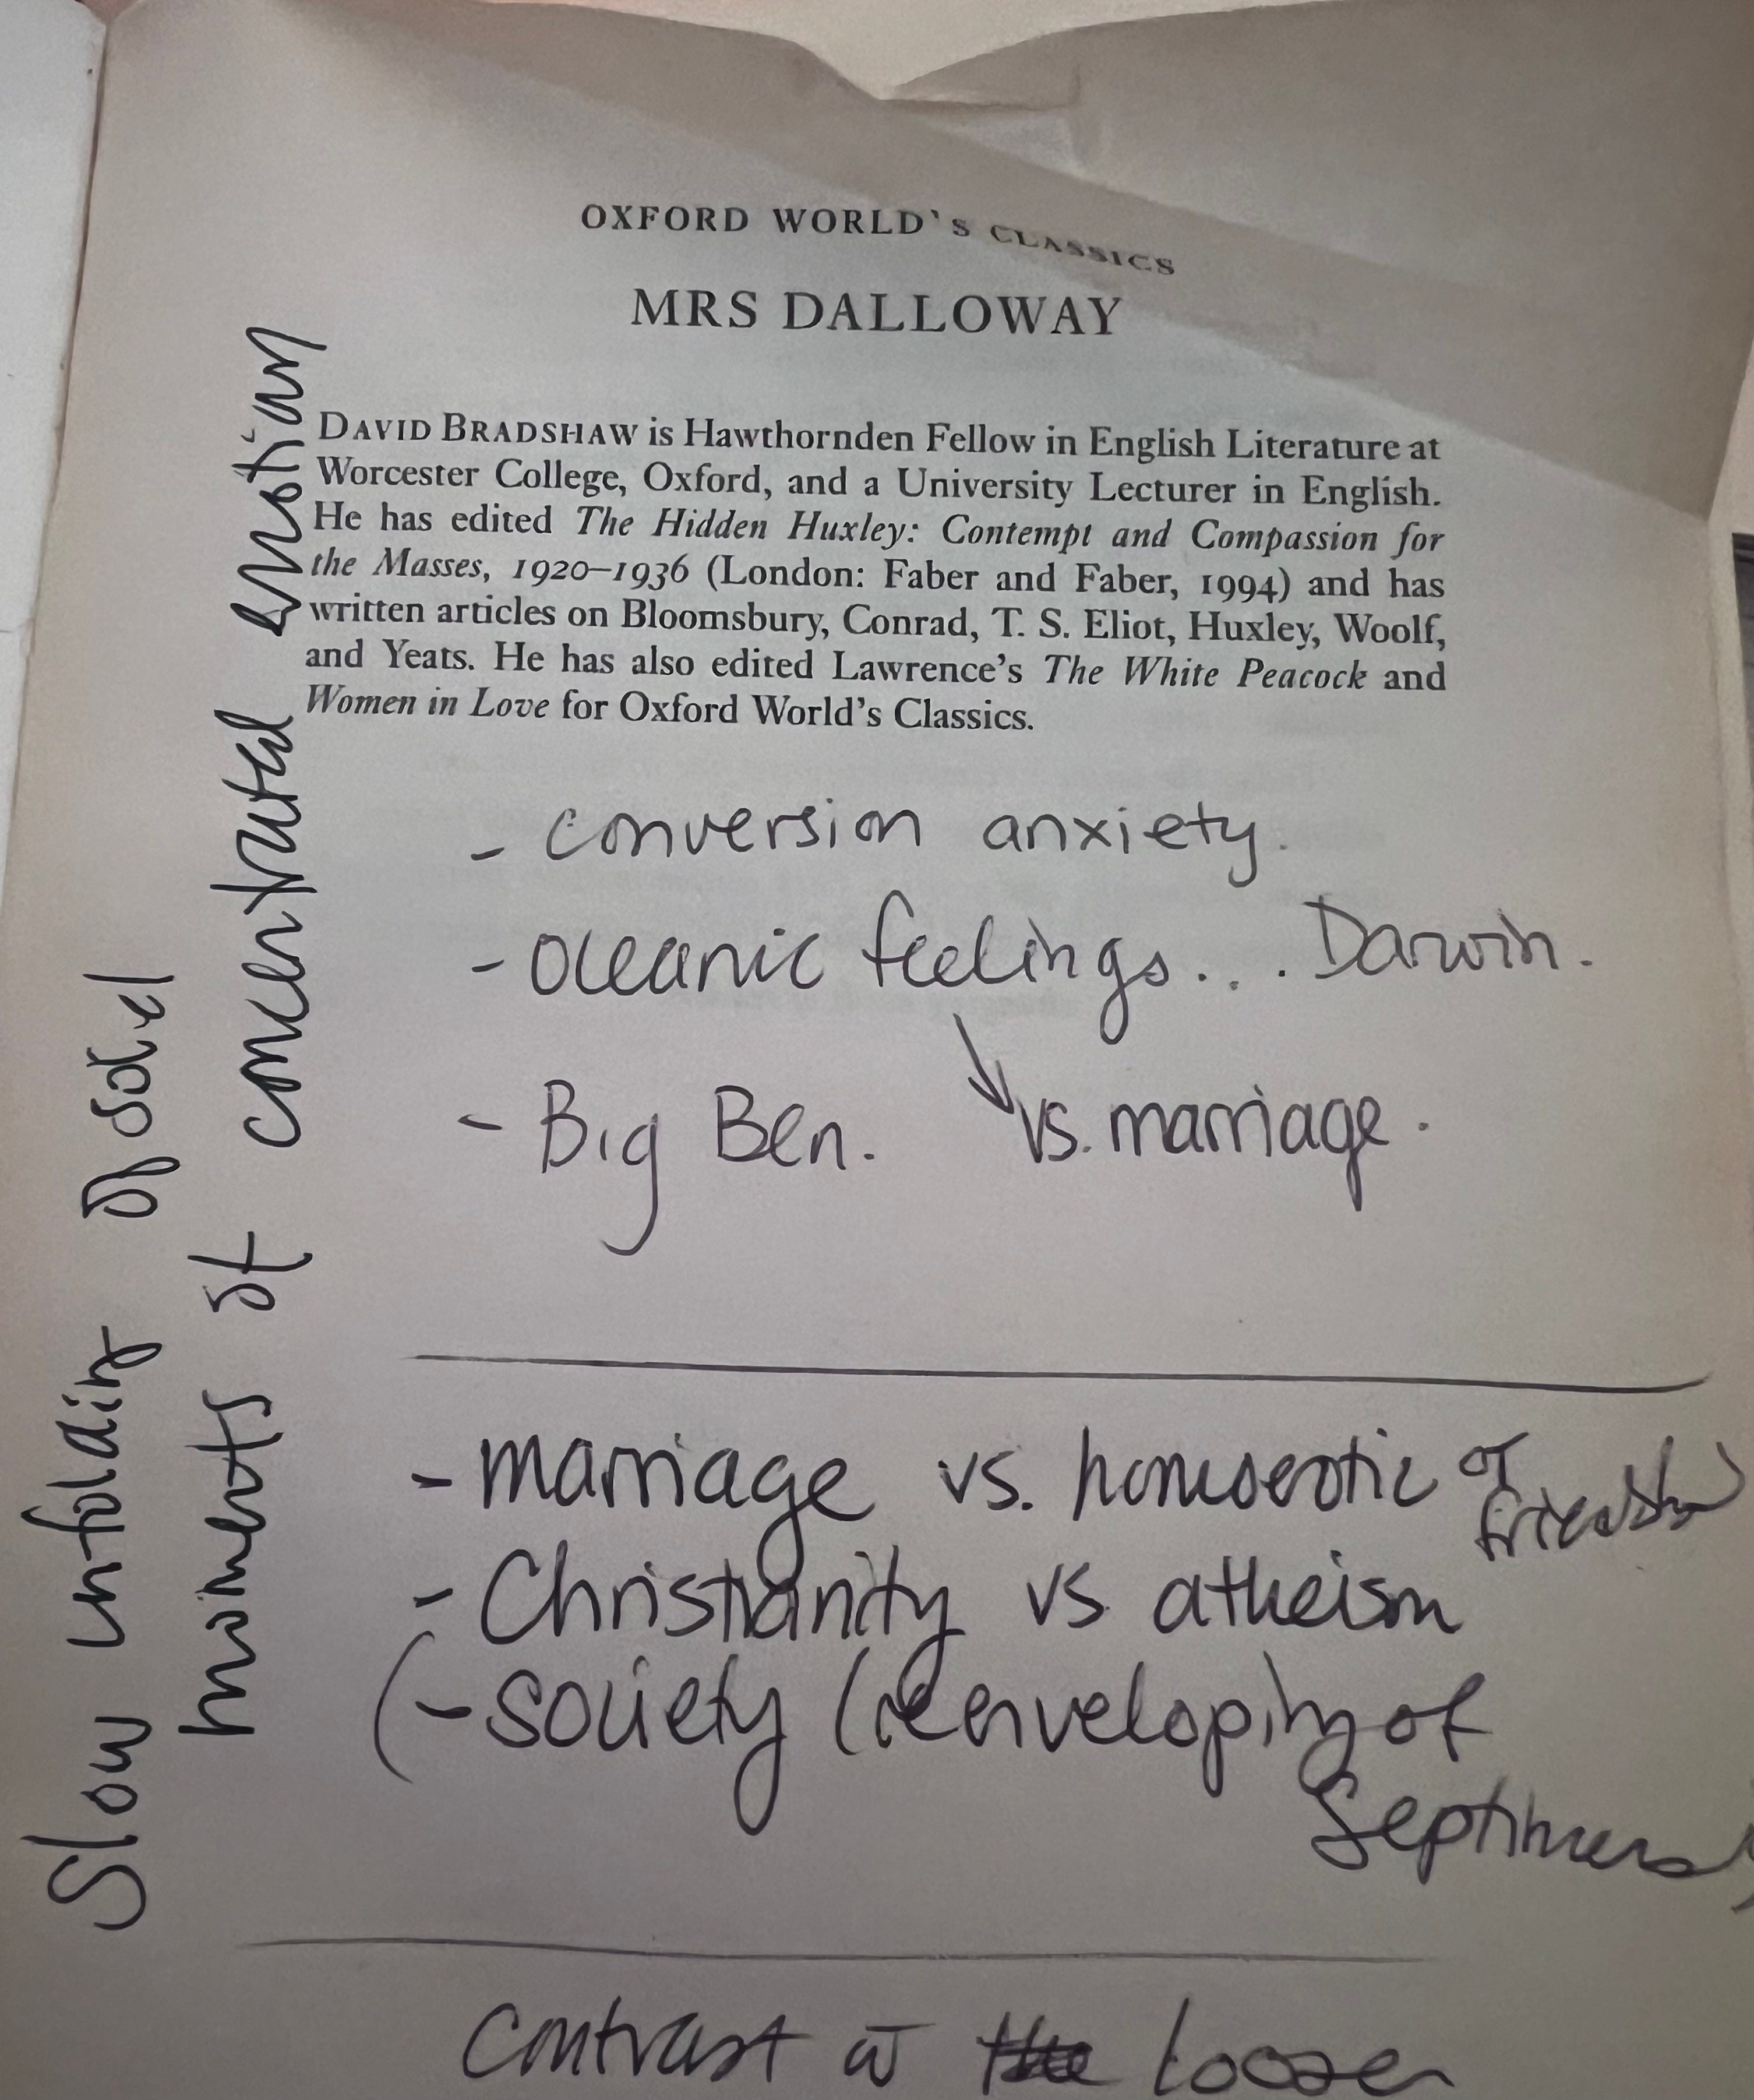 OXFORD WORLD'S CLASSICS
MRS DALLOWAY
DAVID BRADSHAW is Hawthornden Fellow in English Literature at
Worcester College, Oxford, and a University Lecturer in English.
He has edited The Hidden Huxley: Contempt and Compassion for
the Masses, 1920–1936 (London: Faber and Faber, 1994) and has
written articles on Bloomsbury, Conrad, T. S. Eliot, Huxley, Woolf,
and Yeats. He has also edited Lawrence's The White Peacock and
Women in Love for Oxford World's Classics.
- conversion anxiety.
- oceanic feelings... Darwin.
- Big Ben. vs. marriage.
- marriage vs. homoerotic
- Christianity vs atheism
(- society ( enveloping of
Septimus)
contrast w the looser
Slow unfolding of
moments of concentrated emotion